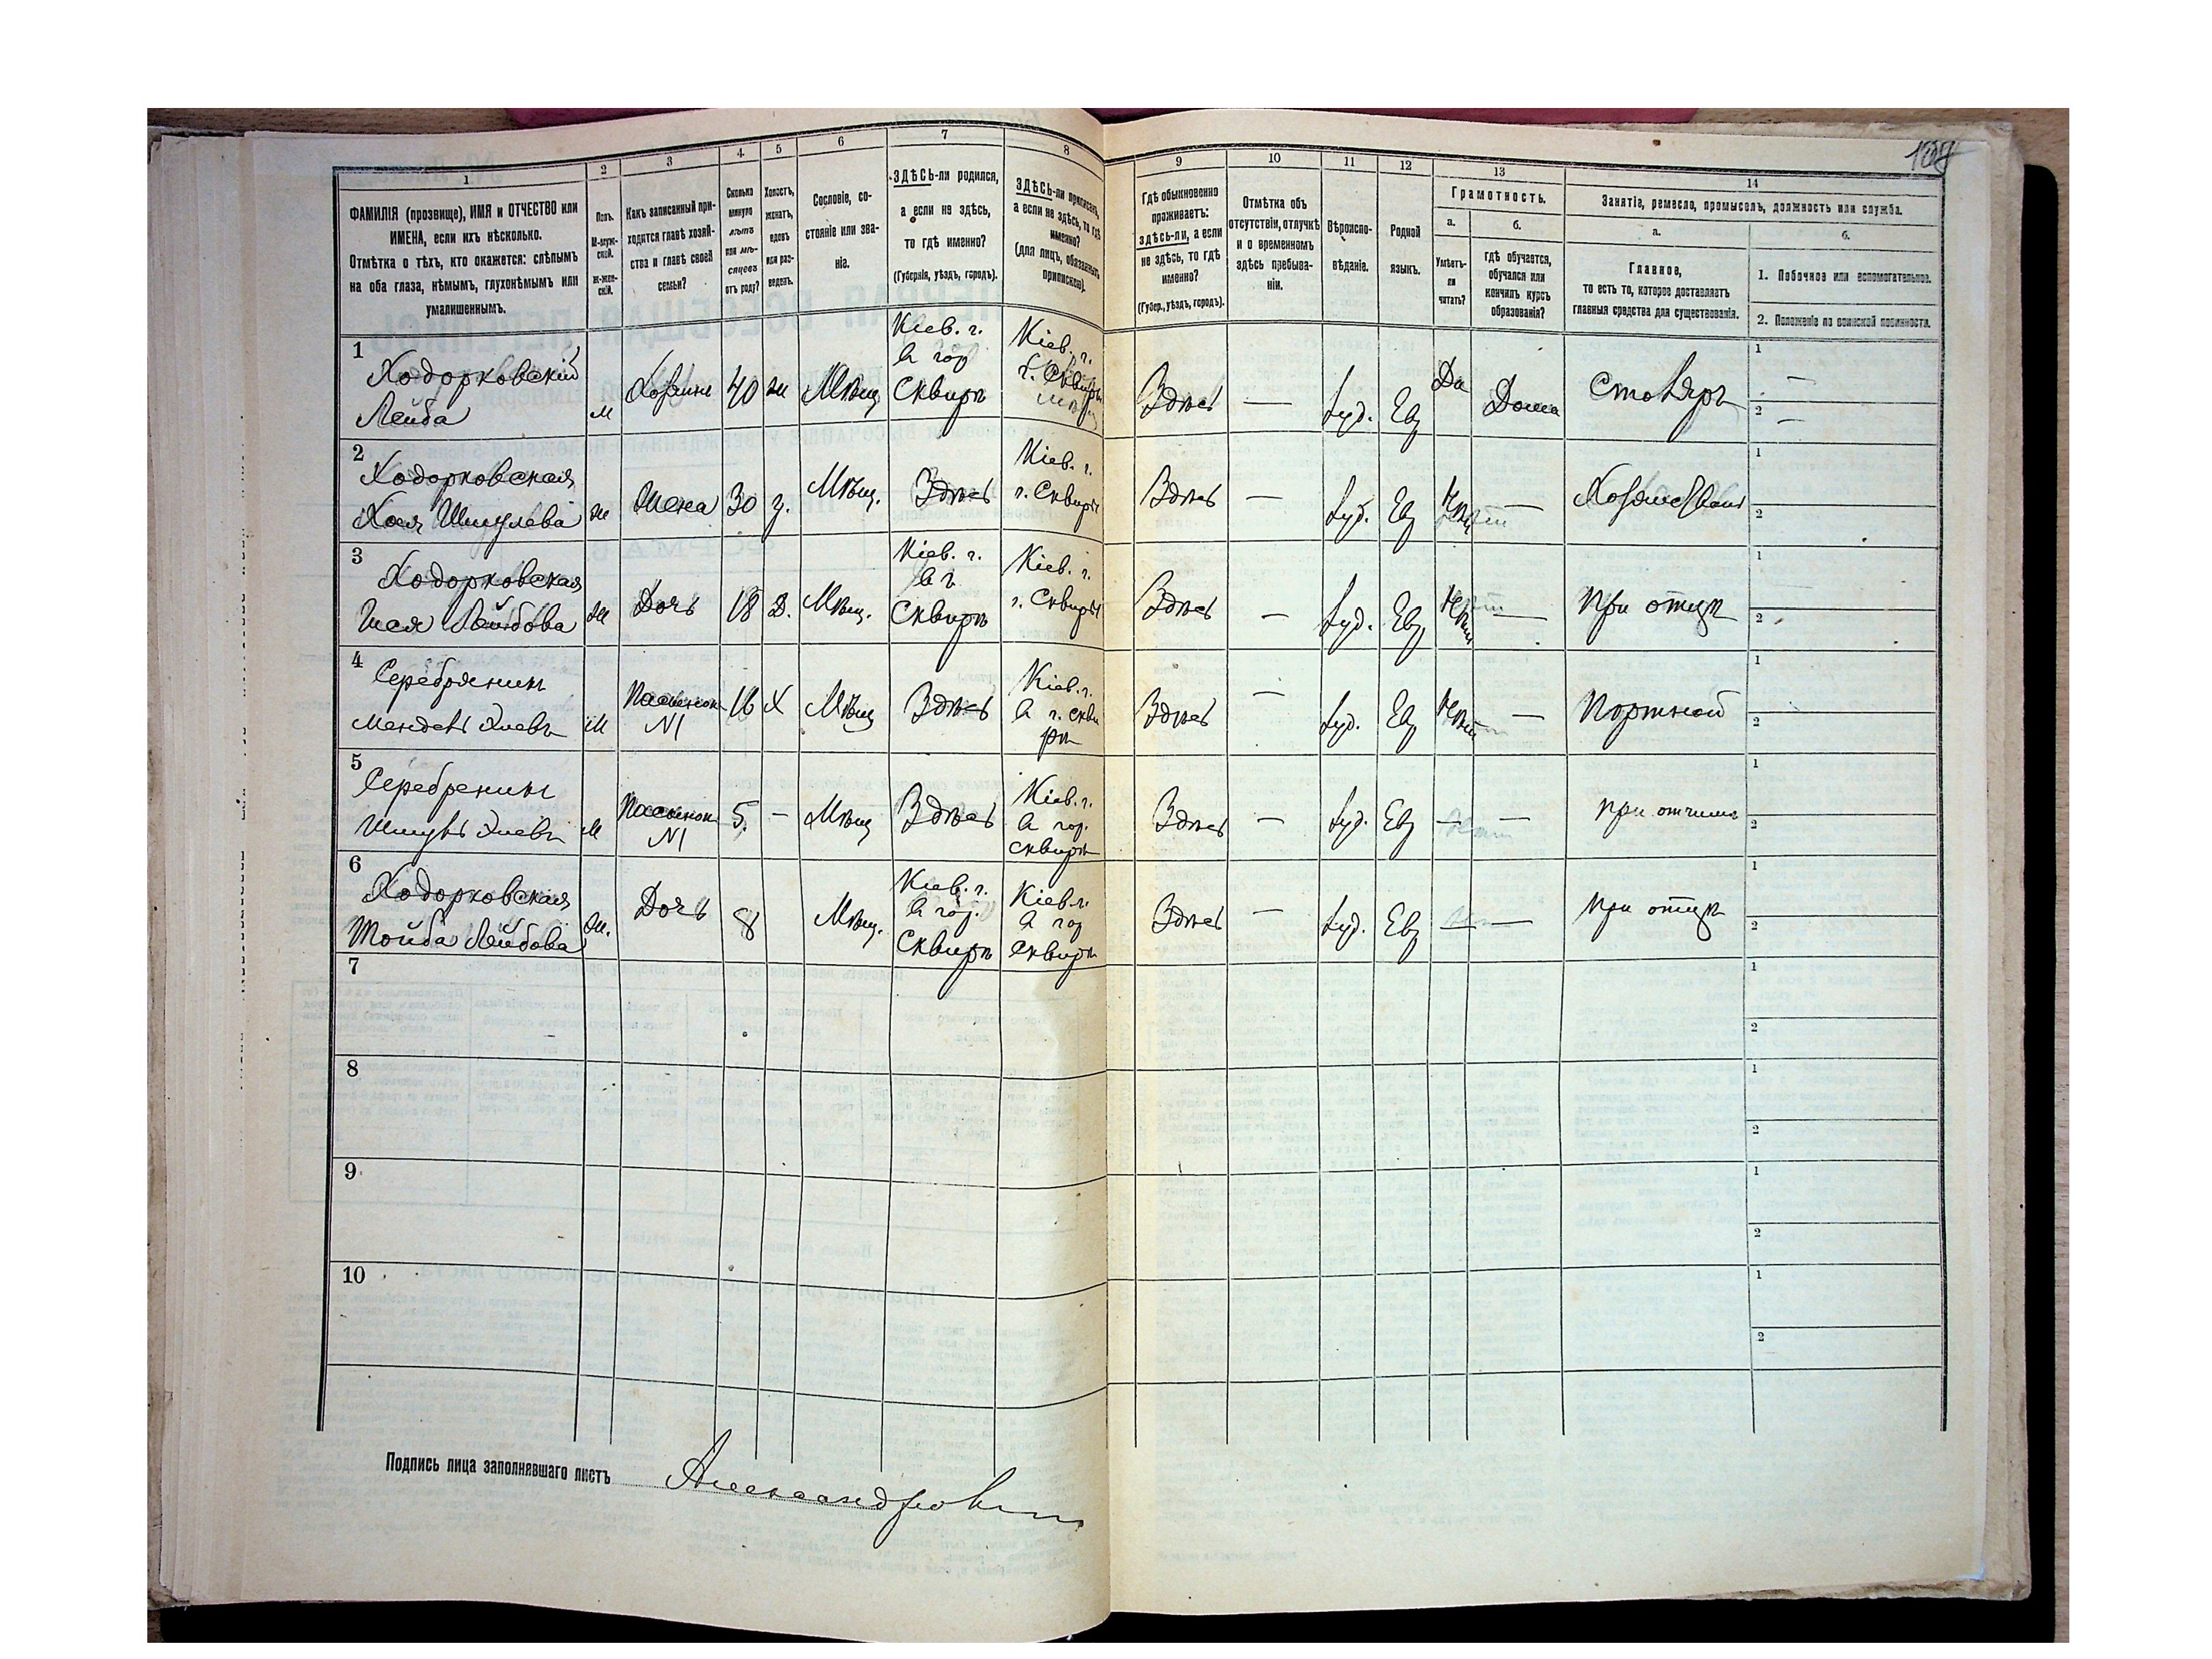 108
1
2
3
4
5
6
7
8
9
10
11
12
13
14
ФАМИЛІЯ (прозвище), ИМЯ и ОТЧЕСТВО или
ИМЕНА, если ихъ нѣсколько.
Отмѣтка о тѣхъ, кто окажется: слѣпымъ
на оба глаза, нѣмымъ, глухонѣмымъ или
умалишеннымъ.
Полъ.
М-муж-
ской.
ж-жен-
скій.
Какъ записанный при-
ходится главѣ хозяй-
ства и главѣ своей
семьи?
Сколько
минуло
лѣтъ
или мѣ-
сяцевъ
отъ роду?
Холостъ,
женатъ,
вдовъ
или раз-
веденъ.
Сословіе, со-
стояніе или зва-
ніе.
ЗДѢСЬ-ли родился,
а если не здѣсь,
то гдѣ именно?
(Губернія, уѣздъ, городъ).
ЗДѢСЬ-ли приписанъ,
а если не здѣсь, то гдѣ
именно?
(для лицъ, обязанныхъ
припискою).
Гдѣ обыкновенно
проживаетъ:
здѣсь-ли, а если
не здѣсь, то гдѣ
именно?
(Губер., уѣздъ, городъ).
Отмѣтка объ
отсутствіи, отлучкѣ
и о временномъ
здѣсь пребыва-
ніи.
Вѣроиспо-
вѣданіе.
Родной
языкъ.
Грамотность.
а.
Умѣетъ-
ли
читать?
б.
гдѣ обучается,
обучался или
кончилъ курсъ
образованія?
Занятіе, ремесло, промыселъ, должность или служба.
а.
Главное,
то есть то, которое доставляетъ
главныя средства для существованія.
б.
1. Побочное или вспомогательное.
2. Положеніе по воинской повинности.
1
Ходорковскій
Лейба
м
Хозяинъ
40
ж
Мѣщ.
Кіев. г.
в гор
Сквирѣ
Кіев. г.
г. Сквирѣ
Здѣсь
—
Іуд.
Ев
Да
Дома
Столяръ
1
—
2
—
2
Ходорковская
Хая Шмулева
ж
Жена
30
з.
Мѣщ.
Здѣсь
Кіев. г.
г. Сквиры
Здѣсь
—
Іуд.
Ев
Нѣтъ
—
1
2
3
Ходорковская
Лейбова
ж
Дочь
18
Д.
Мѣщ.
Кіев. г.
в г.
Сквирѣ
Кіев. г.
г. Сквиры
Здѣсь
—
Іуд.
Ев
Нѣтъ
—
при отцѣ
1
2
4
Серебряникъ
Мендель Хиевъ
м
Пасынок
N1
16
Х
Мѣщ
Здѣсь
Кіев. г.
в г.Скви
рѣ
Здѣсь
—
Іуд.
Ев
Нѣтъ
—
Портной
1
2
5
Серебреникъ
Шмуль Хиевъ
м
Пасынок
N1
5.
—
Мѣщ
Здѣсь
Кіев. г.
в гор.
Сквирѣ
Здѣсь
—
Іуд.
Ев
—
—
при отчимѣ
1
2
6
Ходорковская
Тойба Лейбова
ж.
Дочь
8
Мѣщ.
Кіев. г.
в гор.
Сквирѣ
Кіев. г.
в гор
Сквирѣ
Здѣсь
—
Іуд.
Ев
—
—
при отцѣ
1
2
7
1
2
8
1
2
9
1
2
10
1
2
Подпись лица заполнявшаго листъ